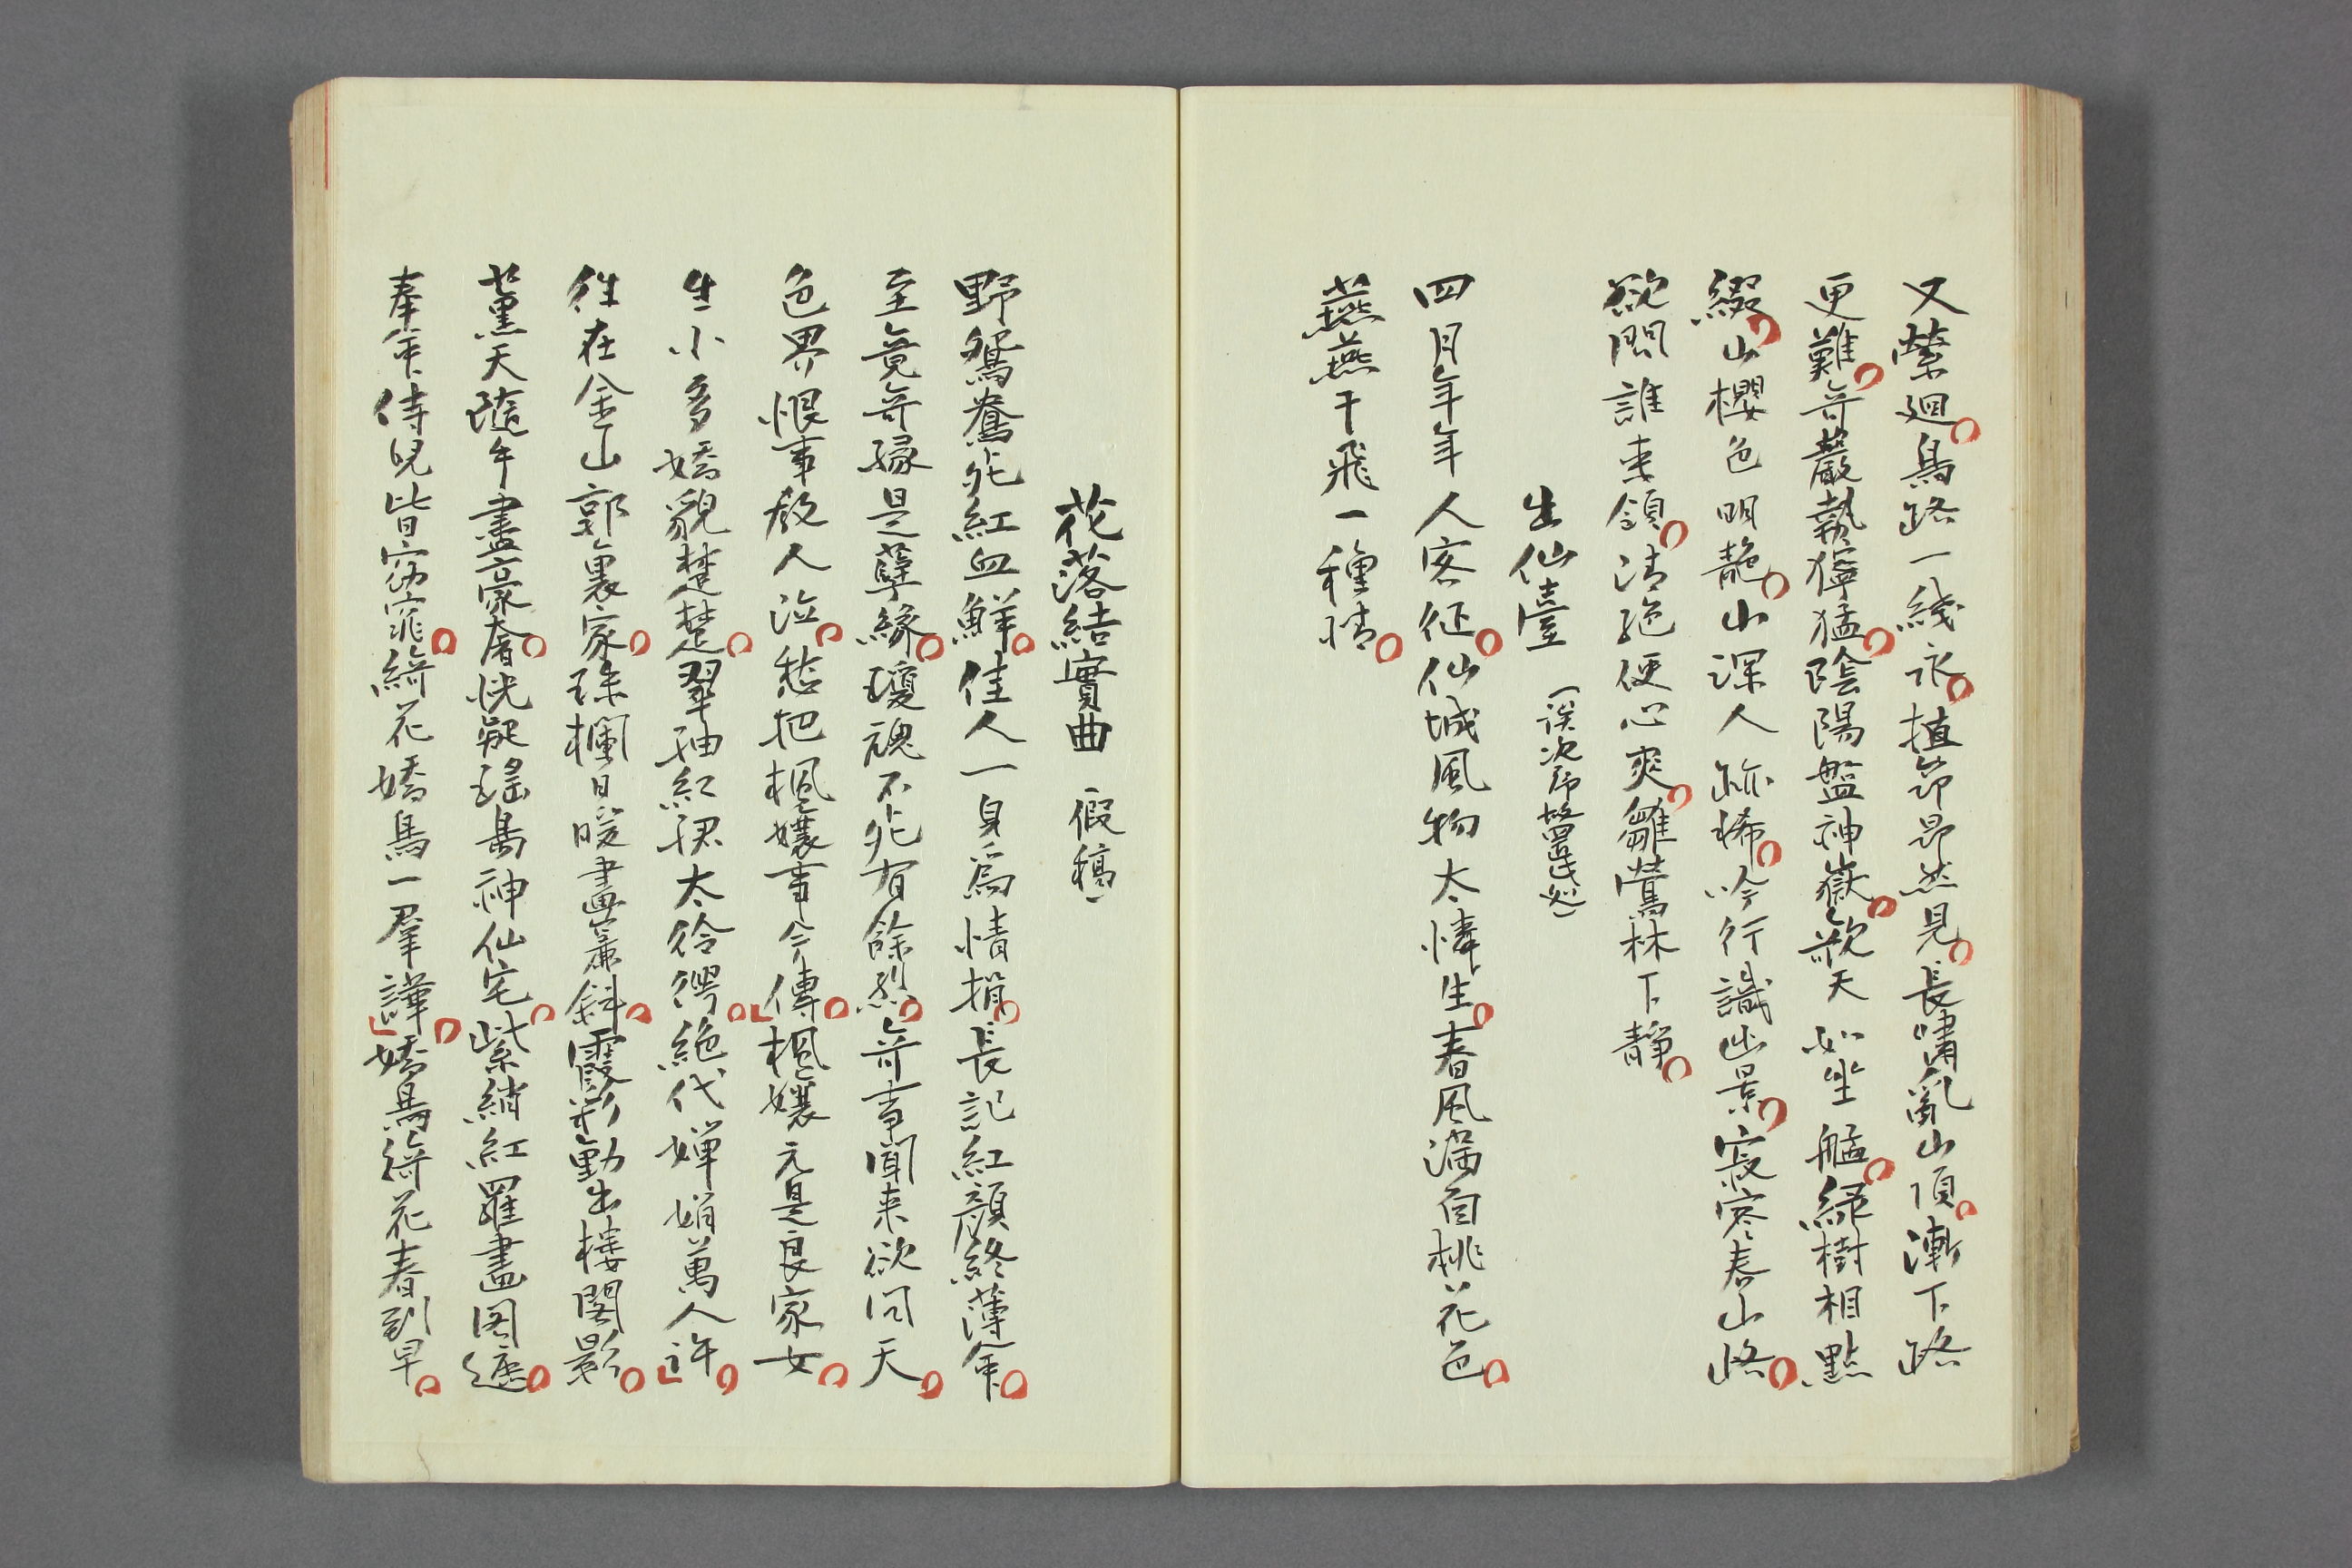 又縈廻鳥路一綫永植筇昂然見長嘯亂山頂漸下路
更難奇巖執獰猛陰陽盤神嶽欹天如坐艋綠樹相點
綴山櫻色明靘山深人跡稀吟行識幽景寂寥春山路
欲問誰来領清絕便心爽雛鶯林下靜
出仙臺
四月年年人客征仙城風物太憐生春風滿目桃花色
燕燕干飛一種情
花落結實曲 (假稿)
野鴛鴦死紅血鮮佳人一身為情捐長記紅顏終薄命
至竟奇緣是孽緣瓊魂不死有餘烈奇事聞来欲問天
色界恨事教人泣愁把楓孃事今傳楓孃元是良家女
生小多嬌貌楚楚翠袖紅裙太伶俜絕代嬋娟萬人許
徃在金山郭裏家珠欄日暖畫簾斜霞彩動出樓閣影
薰天隨午盡豪奢恍疑瑤島神仙宅紫綃紅羅畫図遮
奉命侍兒皆窈窕綺花嬌鳥一羣譁嬌鳥綺花春到早